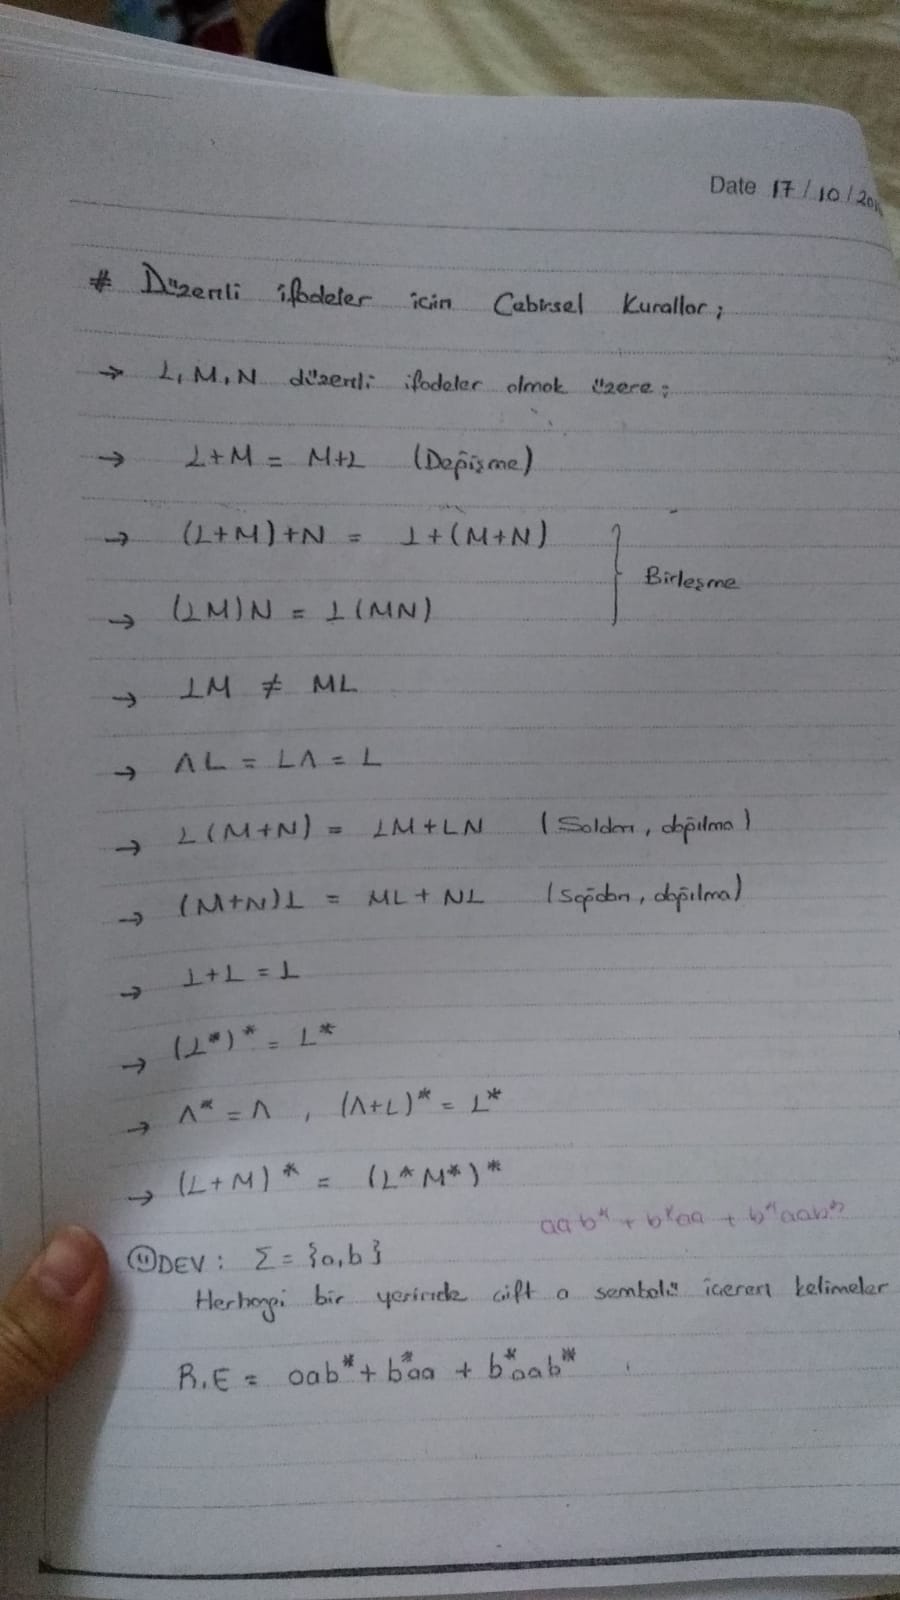 Date 17/10/20
# Düzenli ifadeler için Cebirsel Kurallar;
→ L, M, N düzenli ifadeler olmak üzere;
→ L+M = M+L (Değişme)
→ (L+M)+N = L+(M+N)
Birleşme
→ (LM)N = L(MN)
→ LM ≠ ML
→ ΛL = LΛ = L
→ L(M+N) = LM+LN (Soldan, dağılma)
→ (M+N)L = ML + NL (sağdan, dağılma)
→ L+L = L
→ (L*)* = L*
→ Λ* = Λ , (Λ+L)* = L*
→ (L+M)* = (L*M*)*
aab* + b*aa + b*aab*
DEV: Σ = {a,b}
Herhangi bir yerinde çift a sembolü içeren kelimeler
R.E = aab* + b*aa + b*aab*